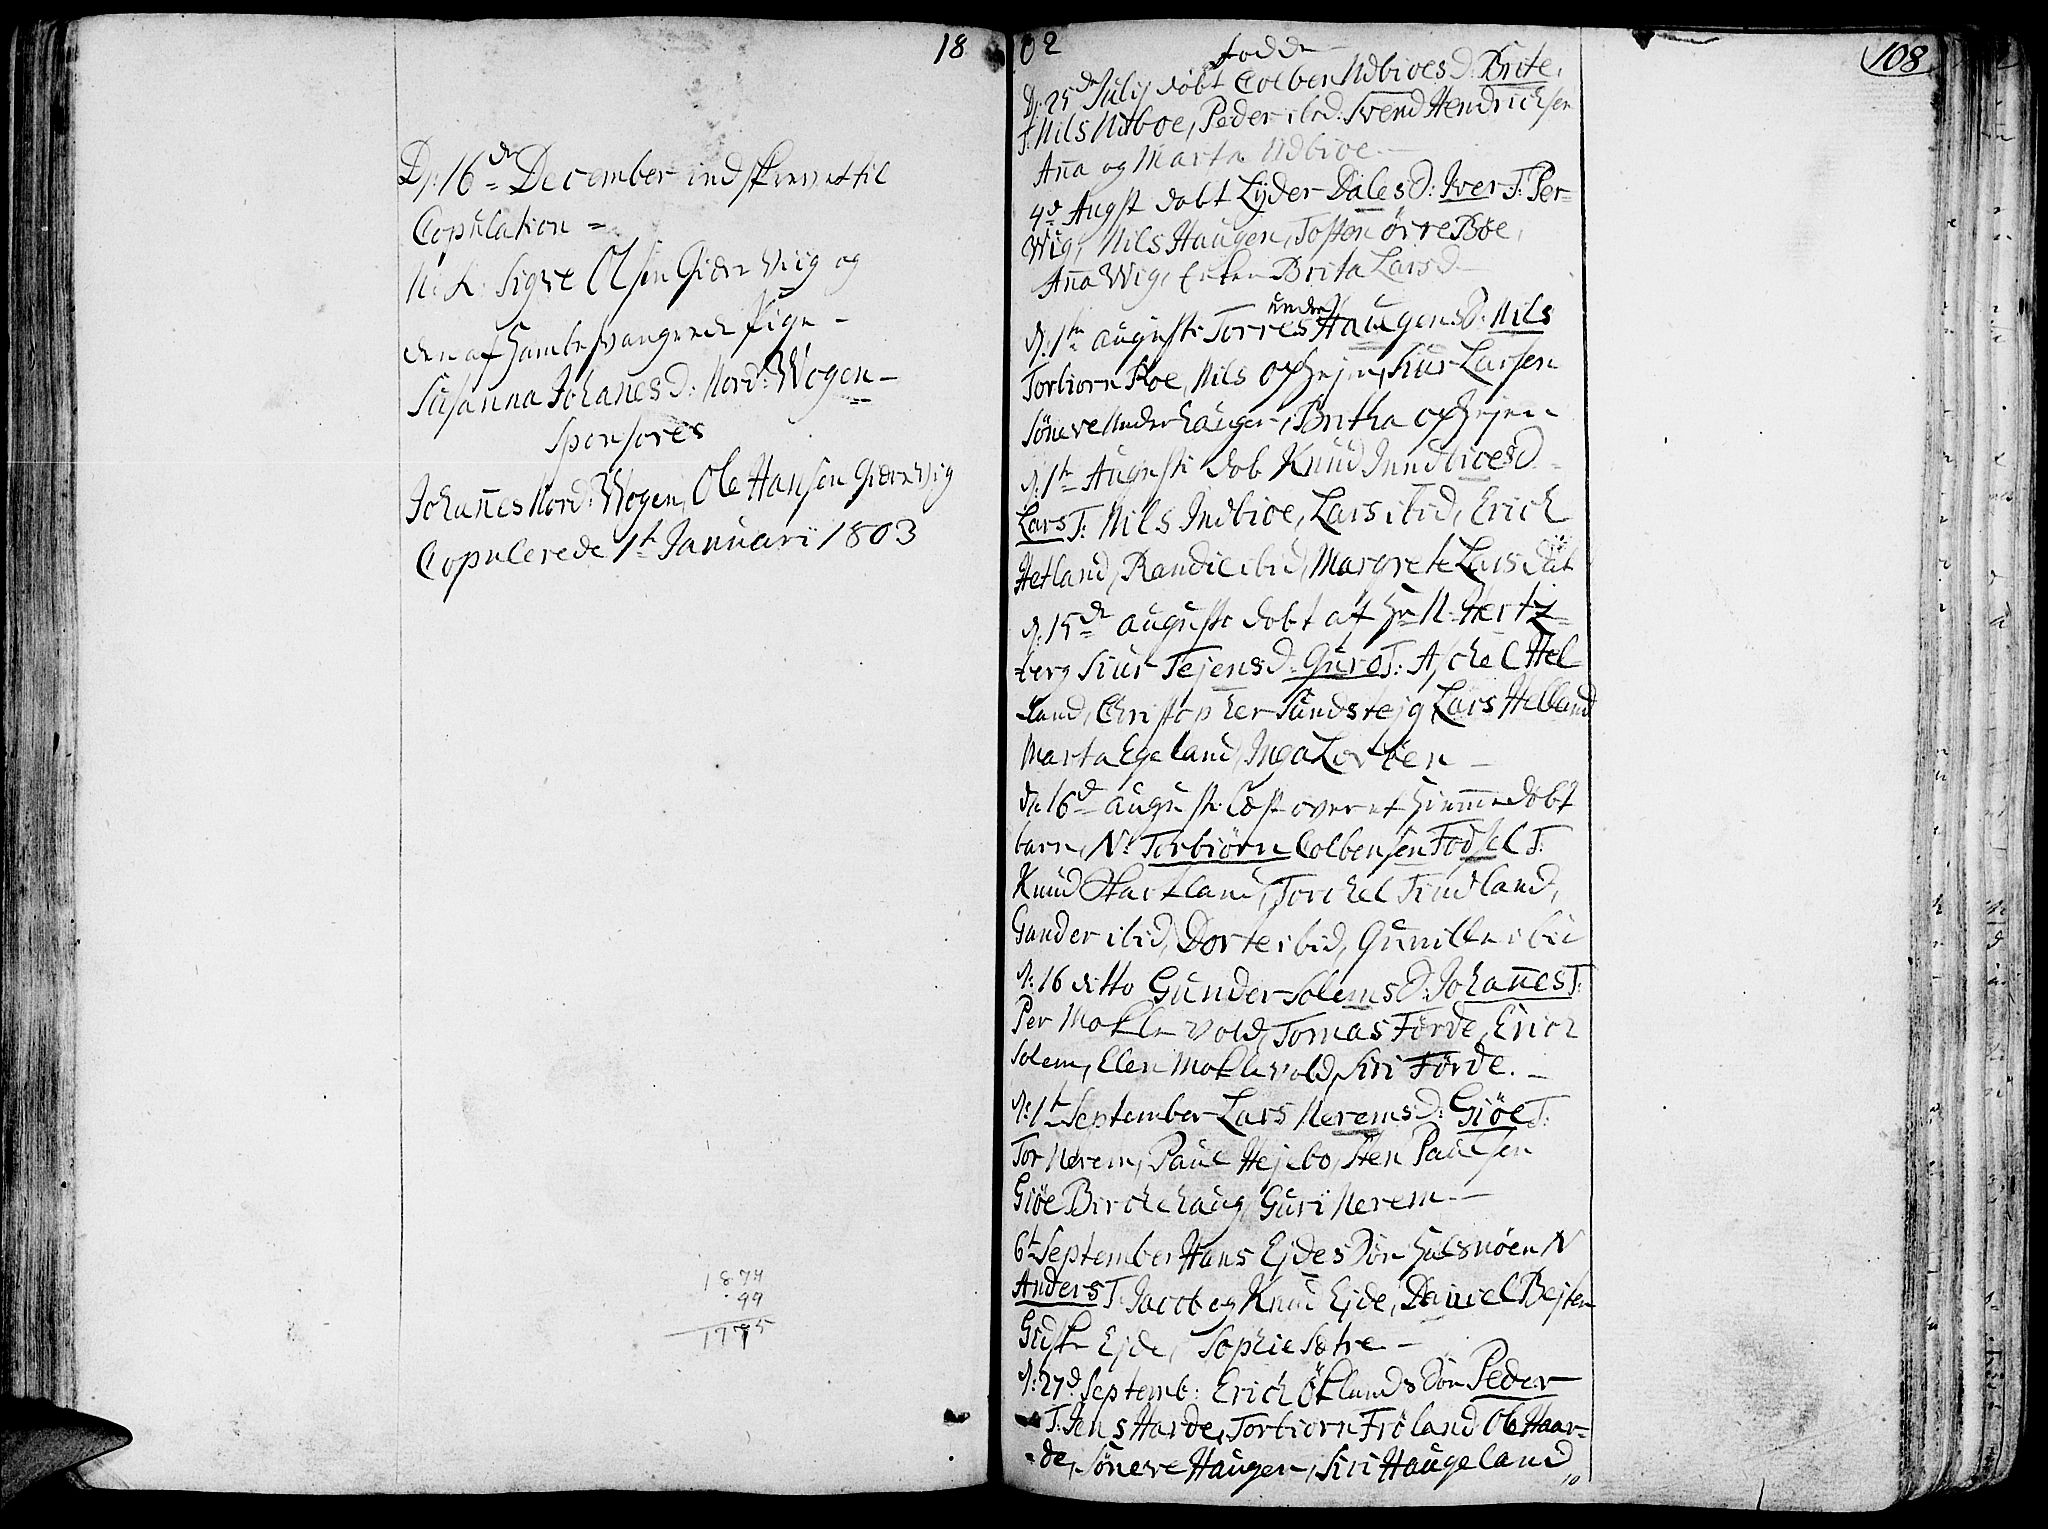 18
D: 16de December indskrevet til
Copulation =
N: K: Sigve Olsen Giderviig og
den af ham besvangrede Pige –
Susanna Johanes D: Nord: Wogen –
Sponsores
Johannes Nord: Wogen, Ole Hansen Gidervig
Copulerede 1t Januari 1803
1874
99
1775
02
108
Fødde
D: 25de Julij døbt Colben Udbioes D: Brite,
T: Nils Udboe, Peder ibd: Svend Hendrichsen
Anna og Marta Udbioe –
4d Augst døbt Lyder Dales D: Iver T: Per
Wig, Nils Haugen, Tosten Ørrebøe,
Anna Wig, Brita Larsd –
d: 1te Augusti Torres under Haugens D: Nils
Torbiorn Roe, Nils Ophejm, Siur Larsen
Søneve Underhaugen, Britha Ophejen
d: 1te Augusti døb Knud Inndbioes D –
Lars T: Nils Indbioe, Lars ibid, Erich
Hetland, Randie ibid, Margrete Lars dat
d: 15de Augusti døbt af Hr N: Hertz
berg Siur Tejens D: Guro T: Aschel Hel
land, Christopher Sundstejg Lars Helland
Marta Egeland, Inga Lovøen –
d: 16d Augusti læst over et hiemmedøbt
barn, N: Torbiørn Colbensen Fodsel T:
Knud Hartland, Torchel Tindland,
Gunder ibid, Dorte ibid, Gunille ibid
d: 16 ditto Gunder Solems D: Johannes T:
Per Moklevold, Tomas Førde, Erich
Solem, Elen Moklevold, Siri Førde. –
d: 1t September Lars Nerems D: Giøe T:
Tor Nerem, Paul Hejebo, Sten Paulsen
Giøe Birchehaug Guri Nerem –
6t September Hans Ejdes Søn Halsnøen N
Anders T: Jacob og Knud Ejde, Daniel Bejten
Gidske Ejde, Sophie Sætre –
d: 27d Septemb: Erich Øklands Søn Peder
T: Jens Harde, Torbiorn Frøland Ole Haar=
=de, Søneve Haugen, Siri Haugeland